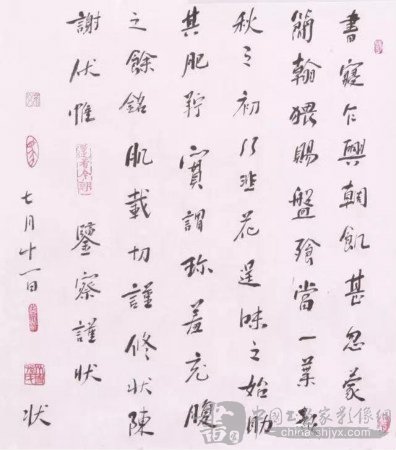 晝寢乍興朝飢甚忽蒙
簡翰猥賜盤飧當一葉報
秋之初乃韭花逞味之始助
其肥羜實謂珍羞充腹
之餘銘肌載切謹修狀陳
謝伏惟 鑒察謹狀
七月十一日
狀
中国书画家影像网
china-shjyx.com